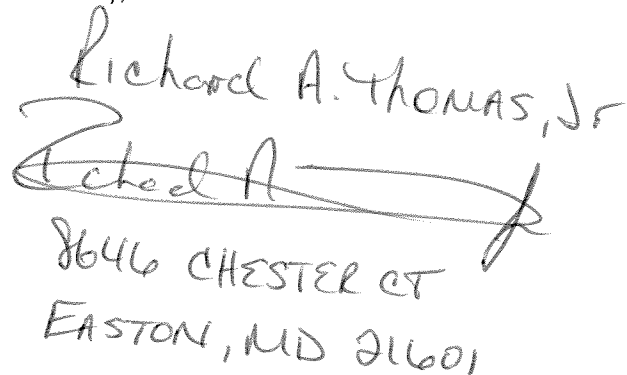 Richard A. Thomas, Jr
Richard A
8646 CHESTER CT
EASTON, MD 21601